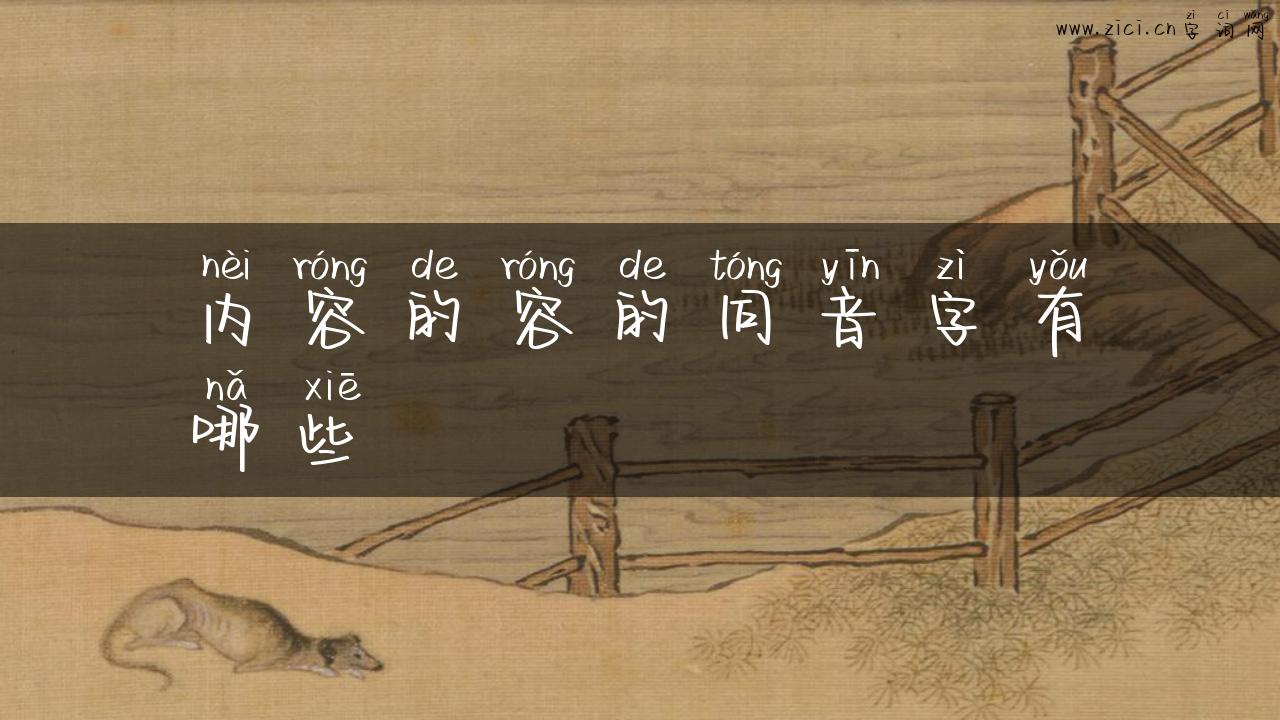 zì cí wǎng
www.zici.cn 字词网
nèi róng de róng de tóng yīn zì yǒu
内容的容的同音字有
nǎ xiē
哪些